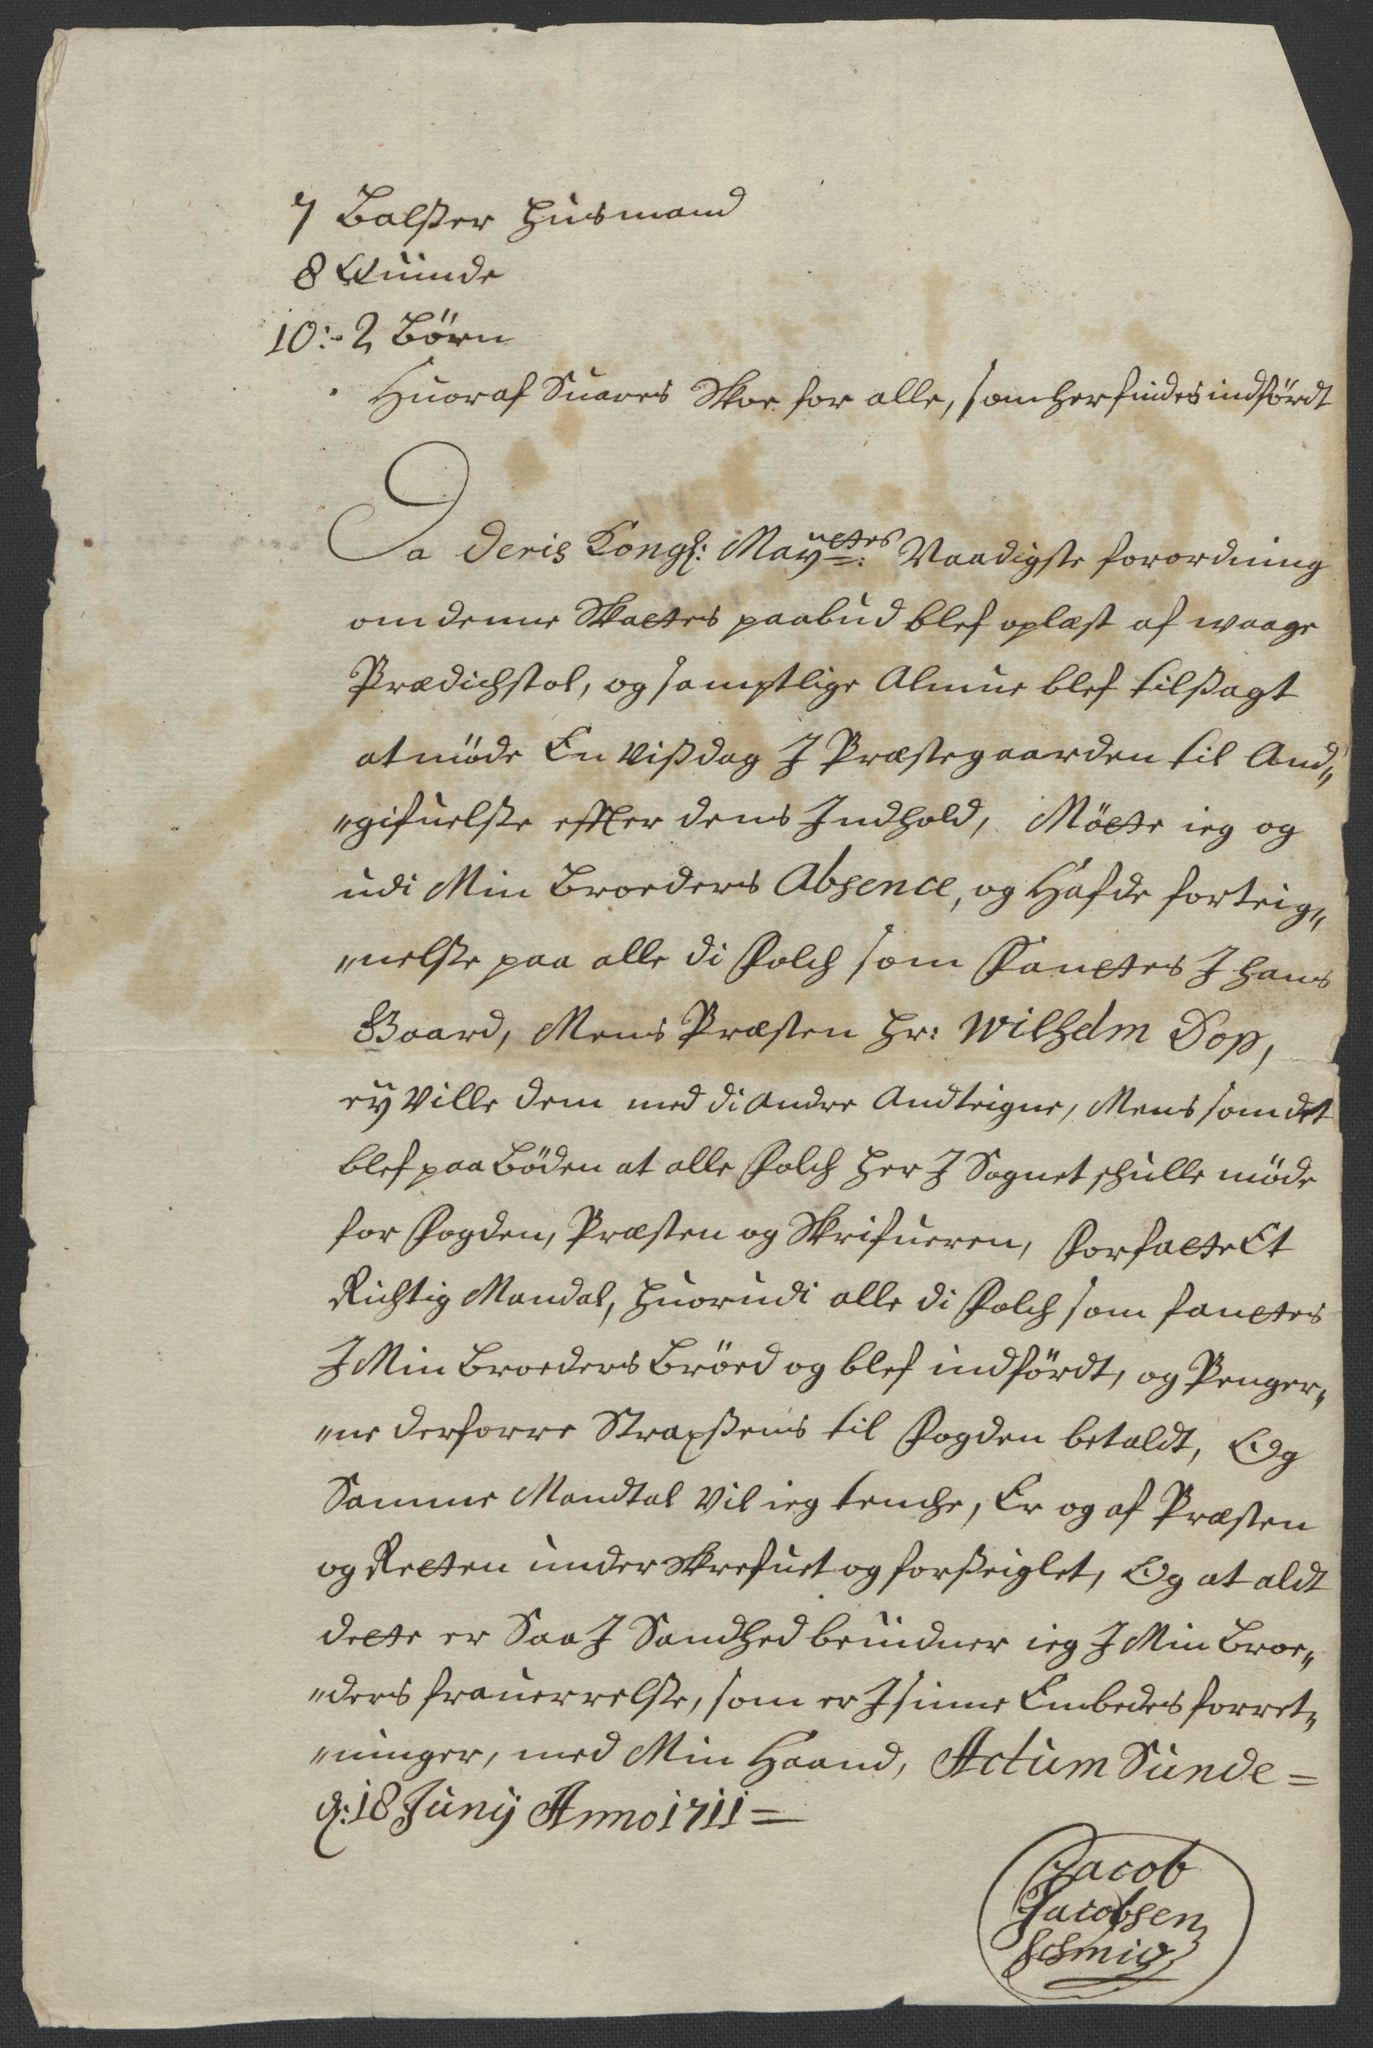 7 Balsser Huusmand
8 Quinde
10:- 2 Børn
Huoraf Suares Skoe for alle, som her findes indførdt
Da Deris Kongl: Mayttes Naadigste forordning
om denne Skattes paabud blef oplæst af waage
Prædichstol, og samptlige Almue blef tilsagt
at møde En Vis dag J Præstegaarden til And„
„gifuelse effter dens Indhold, Møtte ieg og
udi Min Broeders Absence, og Hafde forteig„
„nelse paa alle di Folch som Fantes J hans
Gaard, Mens Præsten Hr: Wilhelm Dop,
ey Ville dem med di Andre Andteigne, Mens som det
blef paa Böden at alle Folch her J Sognet schulle møde
for Fogden, Præsten og Skrifueren, Forfatte Et
Richtig Mandal, huorudi alle di Folch som fantes
J Min Broeders Brøed og blef indførdt, og Penger„
„ne derforre Straxsens til Fogden betaldt, Og
Samme Mandtal Vil ieg tenche, Er og af Præsten
og Retten underskrefuet og forseiglet, Og at aldt
dette er Saa J Sandhed beuidner ieg J Min Broe„
„ders frauerrelse, som er J sinne Embedes forret„
„ninger, med Min Haand, Actum Sunde =
d: 18 Junij Anno 1711 =
Jacob
Jacobsen
Schmidt